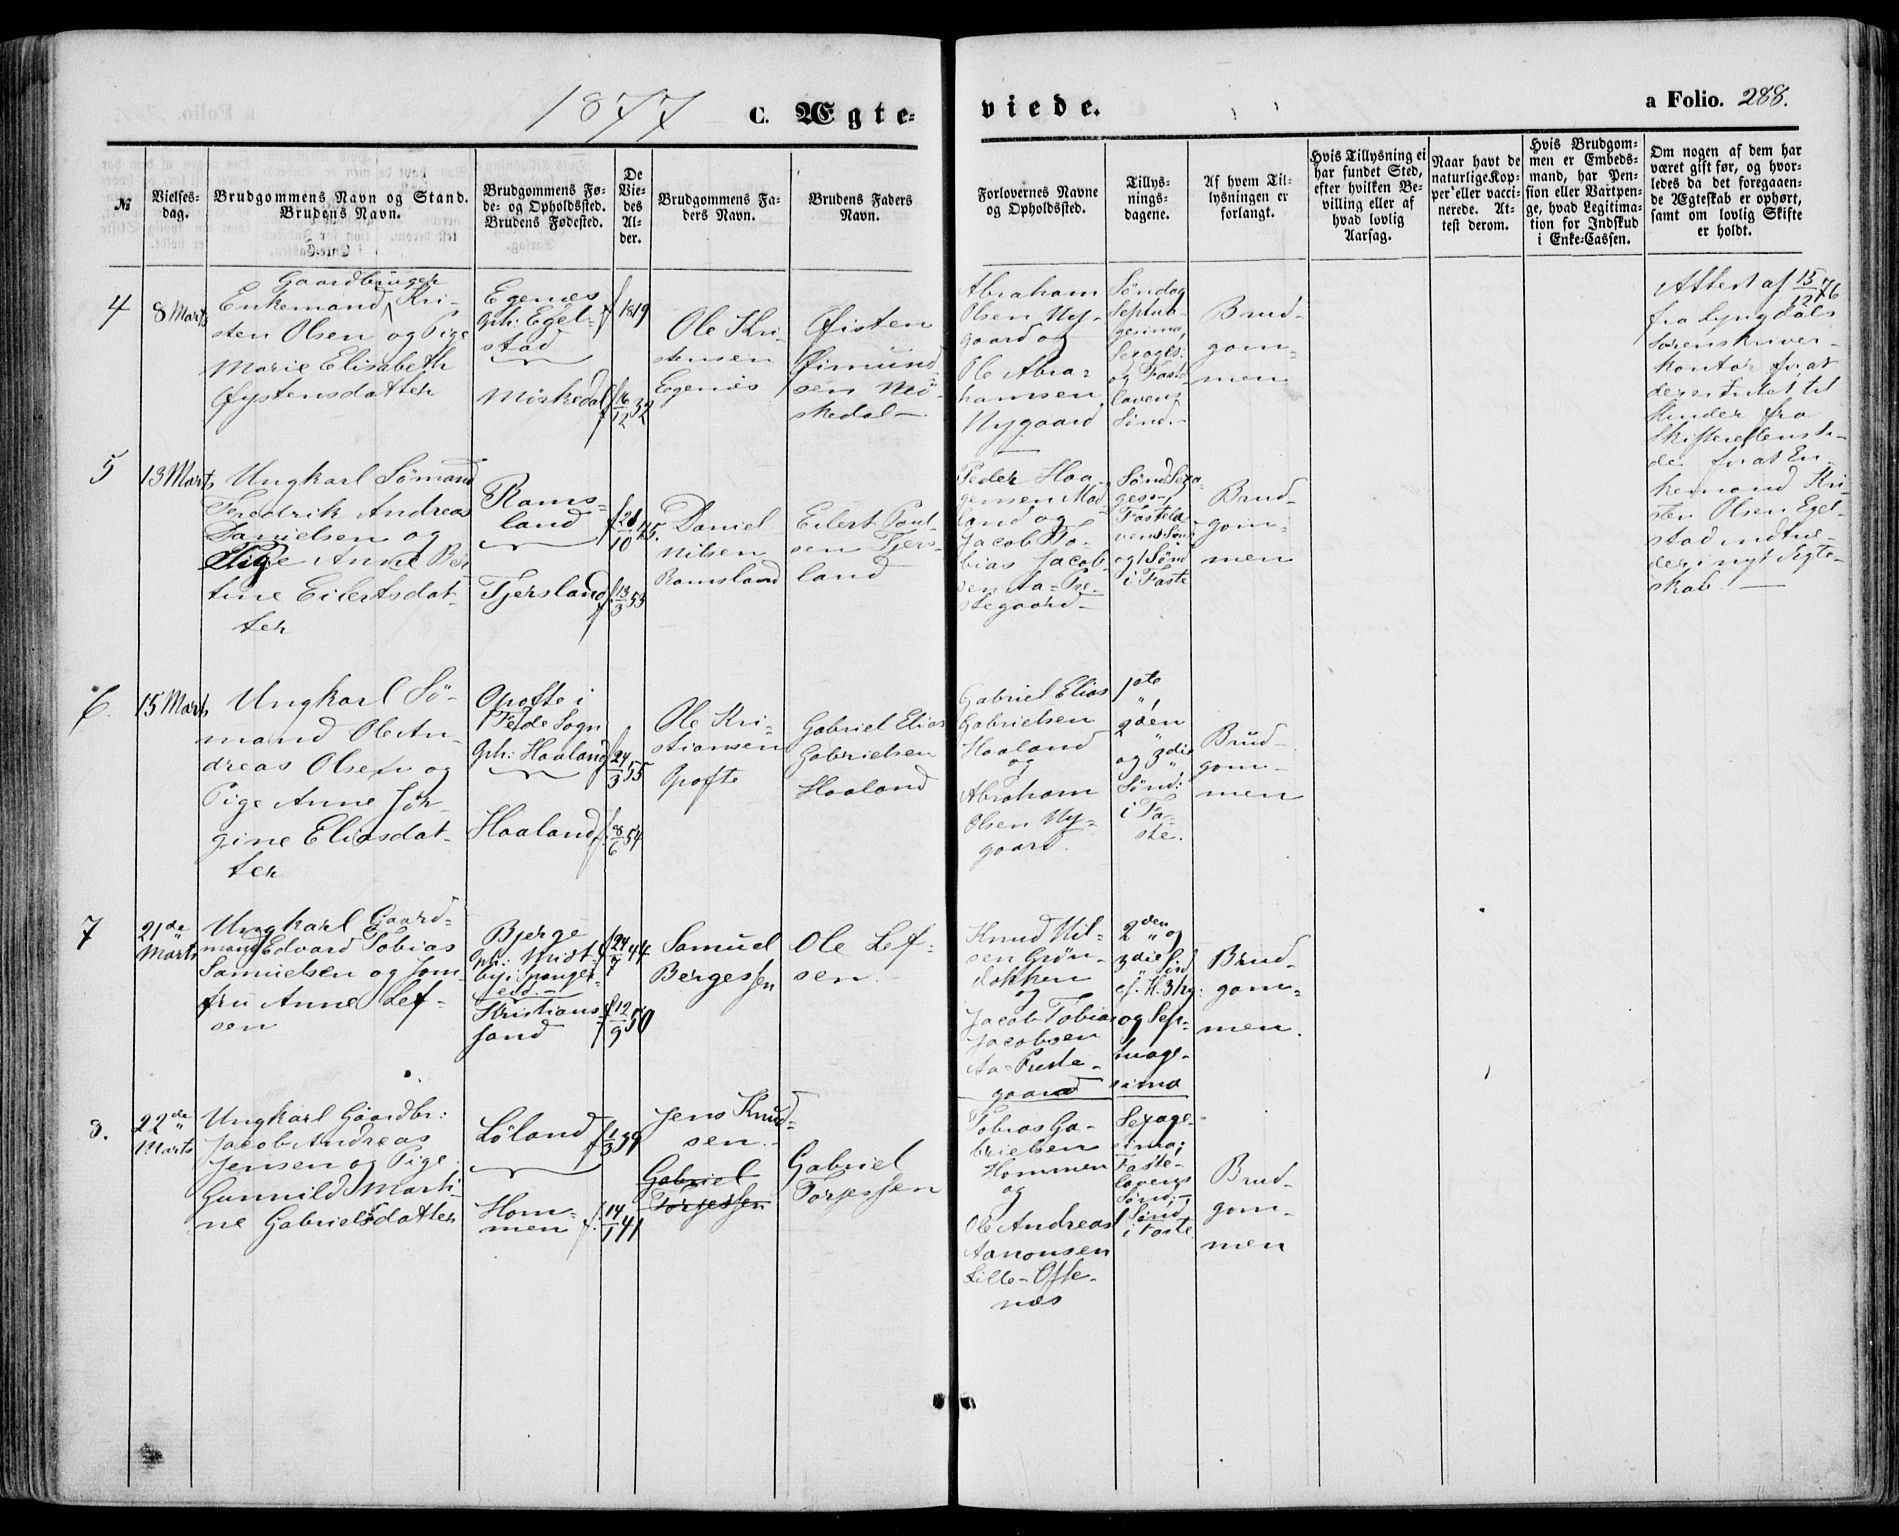 1877 C. Ægte-
viede.
a Folio. 288.
№
Vielses-
dag.
Brudgommens Navn og Stand.
Brudens Navn.
Brudgommens Fø-
de- og Opholdssted.
Brudens Fødested.
De
Vie-
des
Al-
der.
Brudgommens Fa-
ders Navn.
Brudens Faders
Navn.
Forlovernes Navne
og Opholdssted.
Tillys-
nings-
dagene.
Af hvem Til-
lysningen er
forlangt.
Hvis Tillysning ei
har fundet Sted,
efter hvilken Be-
villing eller af
hvad lovlig
Aarsag.
Naar havt de
naturlige Kop-
per eller vacci-
nerede. At-
test derom.
Hvis Brudgom-
men er Embeds-
mand, har Pen-
sion eller Vartpen-
ge, hvad Legitima-
tion for Indskud
i Enke-Cassen.
Om nogen af dem har
været gift før, og hvor-
ledes da det foregaaen-
de Ægteskab er ophørt,
samt om lovlig Skifte
er holdt.
4
8 Marts
Gaardbruger
Enkemand Kri-
sten Olsen og Pige
Marie Elisabeth
Øystensdatter
Egenæs
Oph: Egel-
stad
Möskedal
f 1819
f 16/12 32
Ole Kri-
stensen
Egenæs
Øisten
Øimund-
sen Mö-
skedal
Abraham
Olsen Ny-
gaard og
Ole Abra-
hamsen
Nygaard
Söndag
Septua-
gesima,
Sexages:
og Faste-
lavens
Sönd.
Brud-
gom-
men
Attest af 15/12 76
fra Lyngdals
Sorenskriver-
kontor for at
der intet til
hinder fra
Skifterettens Si-
de for at En-
kemand Kri-
sten Olsen Egel-
stad indtræ-
der i nyt Ægte-
skab
5
13 Marts
Ungkarl Sömand
Fredrik Andreas
Danielsen og
Pige Anne Ber
tine Eilertsdat-
ter
Rams-
land
Tjersland
f 28/10 45.
f 13/3 53
Daniel
Nilsen
Ramsland
Eilert Poul-
sen Tjers-
land
Peder Haa-
gensen Mod
land og
Jacob To-
bias Jacob-
sen Aa-Pre-
stegaard
Sönd Sexa-
ges.,
Fastela
vens Sönd
og 1 Sönd
i Faste
Brud-
gom-
men
6.
15 Marts
Ungkarl Sö-
mand Ole An-
dreas Olsen og
Pige Anne Jör-
gine Eliasdat-
ter
Opofte i
Felde Sogn
Oph: Haaland
Haaland
f 24/3 55
f. 8/6 54
Ole Kri-
stiansen
Opofte
Gabriel Elias
Gabrielsen
Haaland
Gabriel Elias
Gabrielsen
Haaland
og
Abraham
Olsen Ny-
gaard.
1ste
2den
og 3die
Sönd:
i Fa-
ste.
Brud-
gom-
men
7
21de
Marts
Ungkarl Gaard-
mand Edvard Tobias
Samuelsen og Jom-
fru Anne Lef-
sen
Bjerge
Kristians-
sand
f 24/7 44
f 12/9 50
Samuel
Bergessen
Ole Lef-
sen.
Knud Nil-
sen Grön-
dokken
og
Jacob Tobias
Jacobsen
Aa-Preste-
gaard
2den og
3die Sönd
ef. H. 3 Kg:
og Sep-
tuage-
sima
Brud-
gom-
men.
8.
22de
Marts
Ungkarl Gaardbr:
Jacob Andreas
Jensen og Pige
Gunnild Marti-
ne Gabrielsdatter
Löland
Hom-
men
f 1/3 39
f. 14/1 41
Jens Knud-
sen.
Gabriel
Torjessen
Gabriel
Torjessen
Tobias Ga-
brielsen
Hommen
og
Ole Andreas
Aanonsen
Lille-Ofte-
næs
Sexage-
sima;
Faste-
lavens
Sönd;
1 Sönd
i Faste.
Brud-
gom-
men